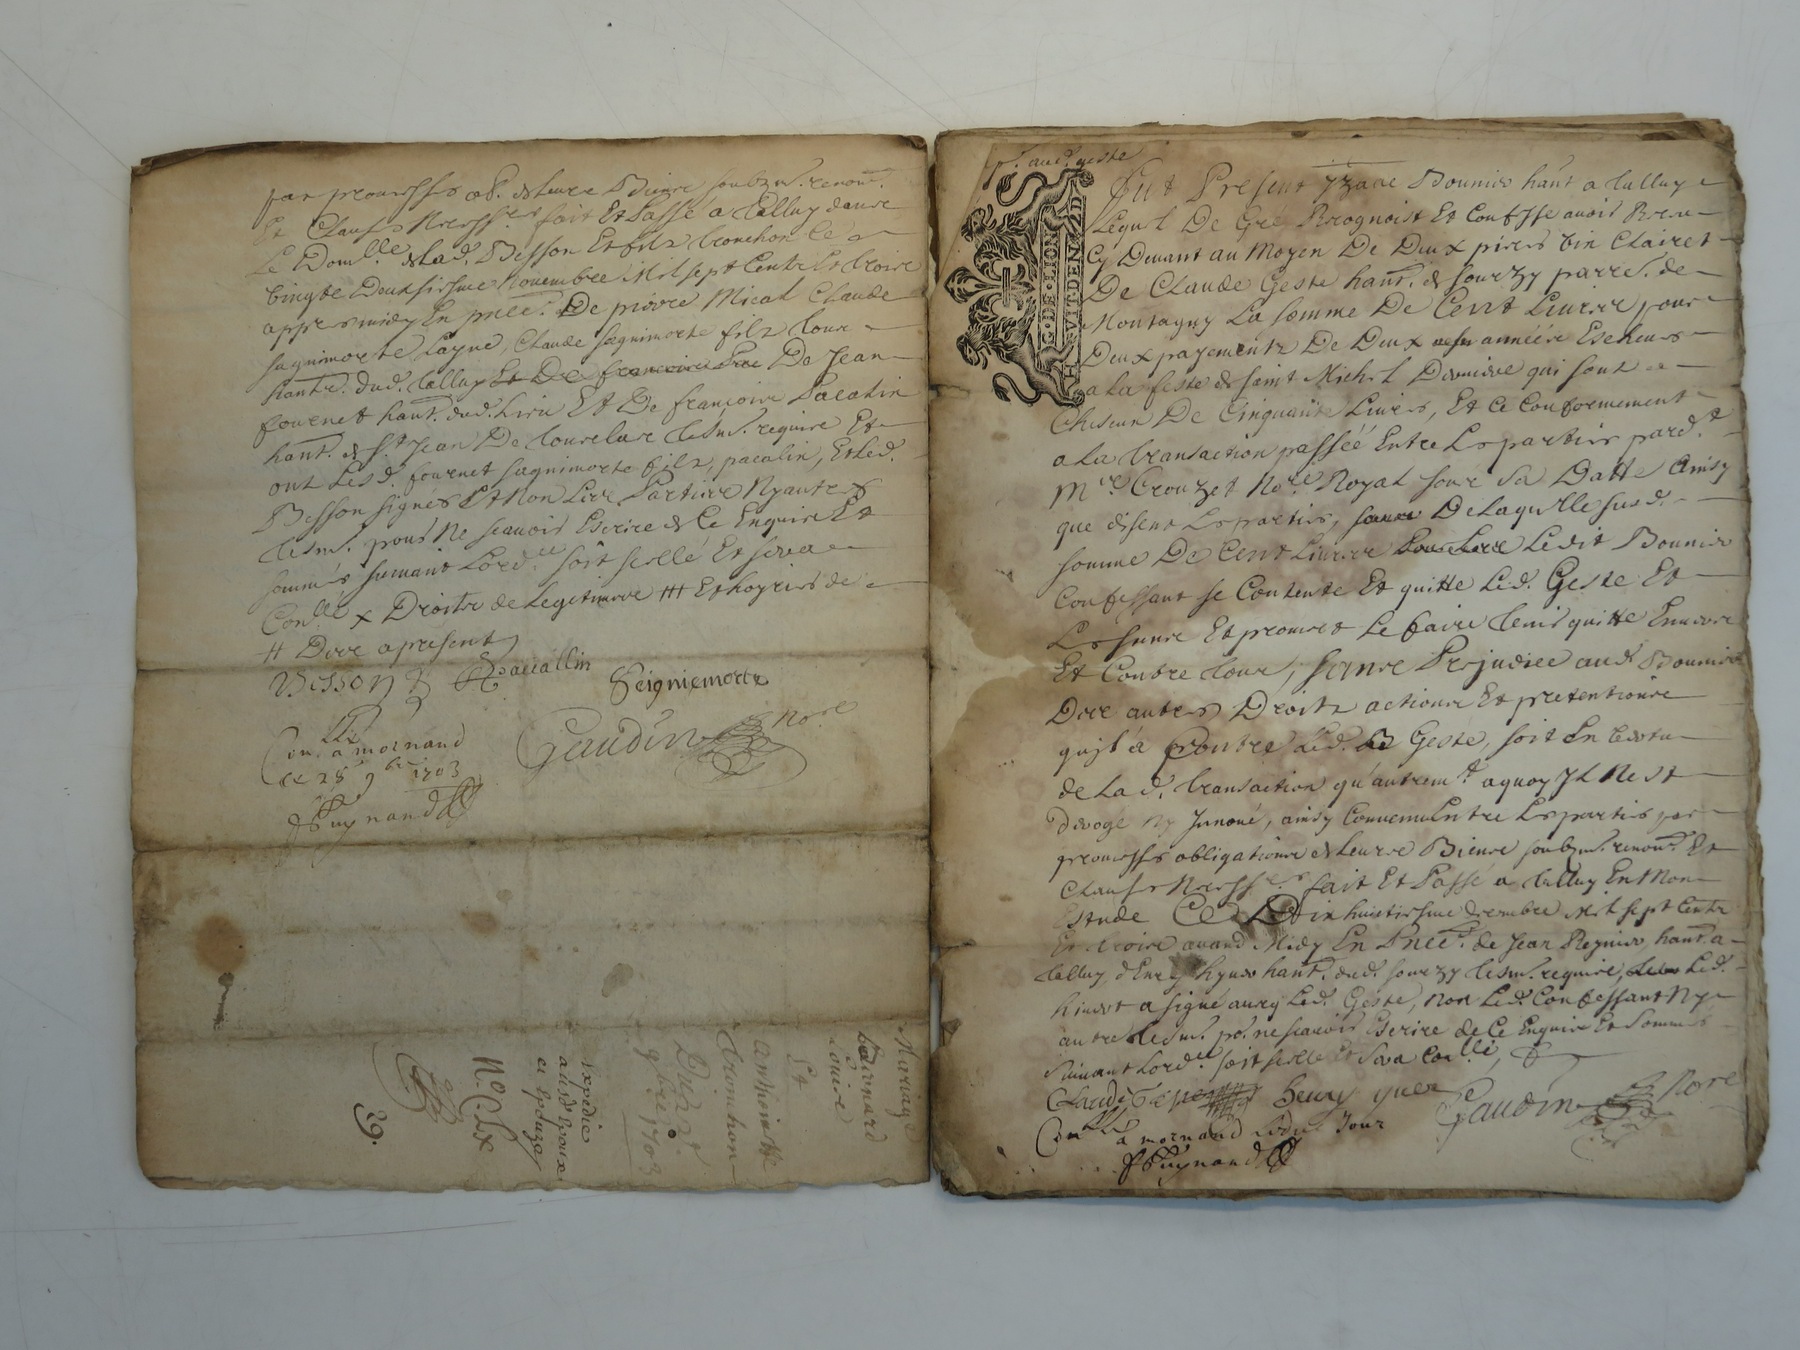 par promesses obl. de leurs Biens soubzm. renon.
Et Clauses Necess.res fait Et Passé a Talluy dans
Le Domlle de lad. Besson Et filz Tronchon Le
vingte Deuxsiesme Novembre Mil sept Centz Et trois
appres midy En pnce. De pierre Micol Claude
sagnimorte Layne, Claude sagnimorte filz tous
hantz. dud. Talluy De Jean
fournet hant. dud. Lieu Et De françois Pacalin
hant. de St. Jean De touslas tesm. requis Et
ont Lesd. fournet sagnimorte filz, pacalin, Et led.
Besson signés Et Non Les Parties Ny autres
tesm. pour Ne scavoir Escrire de Ce Enquis Et
sommés suivant Lord.ce soit scellé Et sera
Conllé x Droitz de Legitimes ## Et hoyries de
# Dors a present
Besson Pacallin Seigniemorte
Gaudin Nore
Conllé a mornand
ce 28 9bre 1703
Puynand
Mariage
Bernard
Et
anthoinette
tronchon
Du 22.
9bre 1703
Expedié
ausd Epoux
et Epouze
No. Clx
39.
p. aud. geste
G. DE LION
HVIT DEN. 2D
Fut Present Yzaac Bounier hant a talluy
Lequel De Gré Recognoist Et Confesse avoir Receu
Cy Devant au Moyen De Deux pieces vin Clairet
De Claude Geste hant. de sourzy parre. de
Montagny La somme De Cent Livres pour
Deux payementz De Deux années Escheues
a La feste de saint Michel Derniere qui sont
Chescun De Cinquante Livres, Et Ce Conformement
a La transaction passéé Entre Les parties pard.t
Mre Crouzet Nore Royal sous sa Datte Ainsy
que disent Les parties, De laquelle susd.
somme De Cent Livres Ledit Bounier
Confessant se Contente Et quitte Led. Geste Et
Les siens Et promet Le faire tenir quitte Envers
Et Contre tous, sans Prejudice aud. Bounier
Des autres Droitz actions Et pretentions
qu'il a Contre Led. Geste, soit En vertu
de La d. transaction qu'autrem.t a quoy Jl Nest
derogé Ny Jnnové, ainsy Convenu Entre Les parties par
promesses obligations de leurs Biens soubzm. renon. Et
Clauses Necess.res fait Et Passé a talluy En Mon
Estude Ce huictiesme decembre Mil sept Centz
Et trois avand Midy En Pnce. de Jean Reynier, hant. a
talluy, d'Enry hyver hant. dud. sourzy tesm. requis, Led.
hivert a signé avecq Led. Geste, Non Led. Confessant Ny
autre tesm. po. ne scavoir Escrire de Ce Enquis Et Sommés
suivant Lord.ce soit scellé Et sera Conllé,
Claude Geste Henry yver Gaudin Nore
Conllé a mornand Lesd. Jour
Puynand